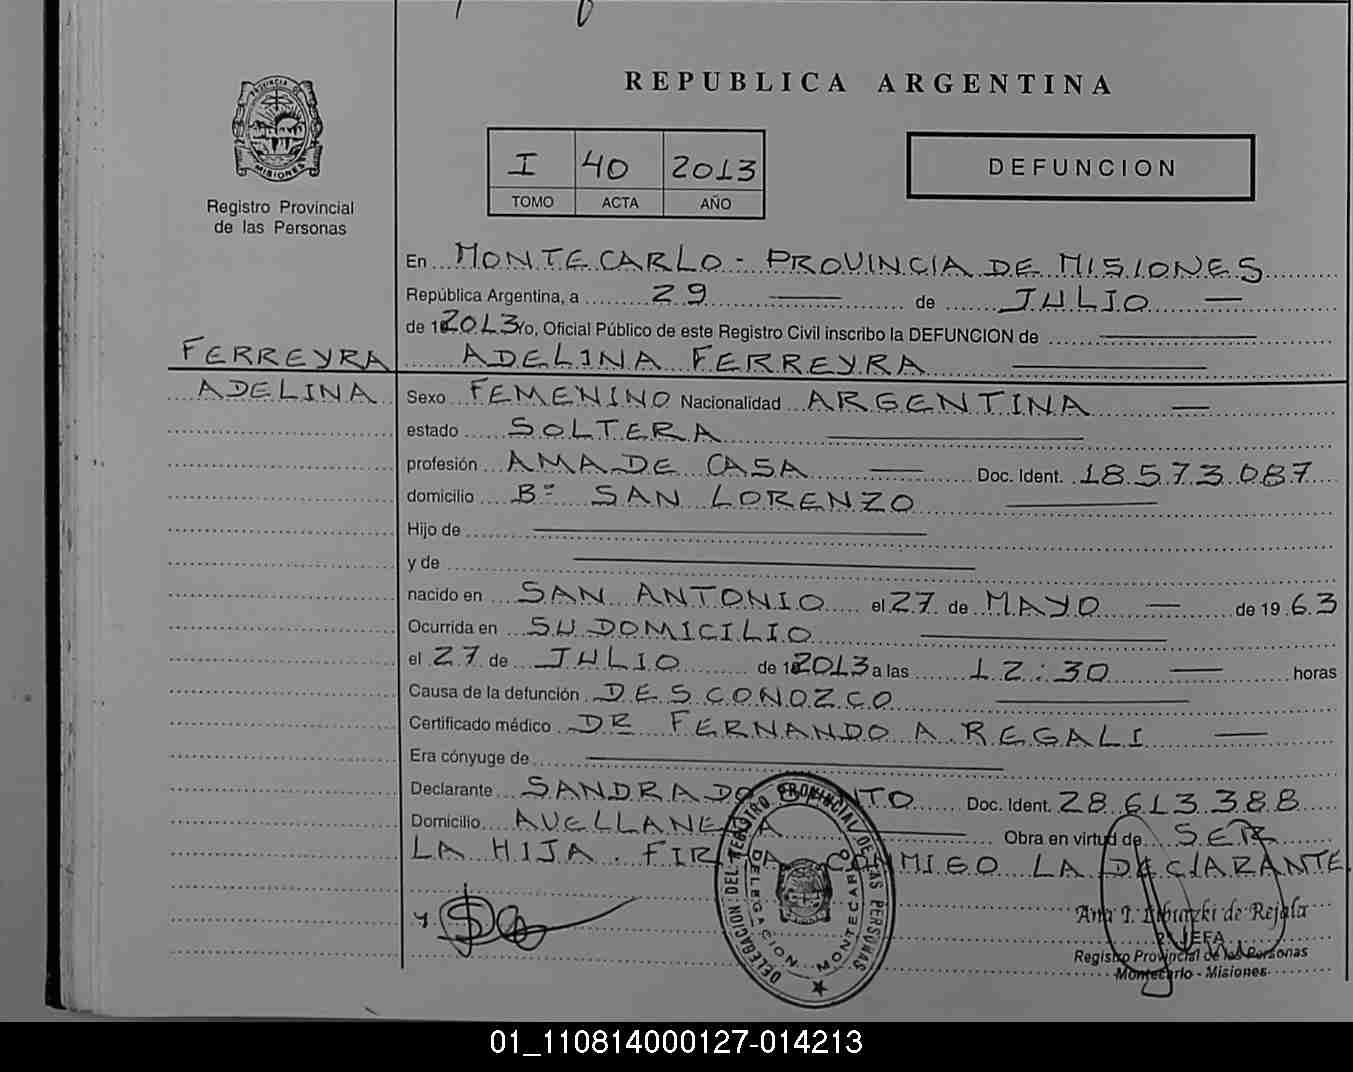 REPUBLICA ARGENTINA
PROVINCIA DE
MISIONES
Registro Provincial
de las Personas
I 40 2013
TOMO ACTA AÑO
DEFUNCION
En MONTECARLO - PROVINCIA DE MISIONES
República Argentina, a 29 de JULIO
de 2013 Yo, Oficial Público de este Registro Civil inscribo la DEFUNCION de
FERREYRA ADELINA FERREYRA
ADELINA Sexo FEMENINO Nacionalidad ARGENTINA
estado SOLTERA
profesión AMA DE CASA Doc. Ident. 18.573.087
domicilio Bº SAN LORENZO
Hijo de
y de
nacido en SAN ANTONIO el 27 de MAYO de 1963
Ocurrida en SU DOMICILIO
el 27 de JULIO de 2013 a las 12:30 horas
Causa de la defunción DESCONOZCO
Certificado médico DR FERNANDO A. REGALI
Era cónyuge de
Declarante SANDRA DO Doc. Ident. 28.613.388
Domicilio AVELLANEDA Obra en virtud de SER
LA HIJA. FIRMA CONMIGO LA DECLARANTE
DELEGACION DEL REGISTRO PROVINCIAL DE LAS PERSONAS
DELEGACION - MONTECARLO
Ana I. de Rejala
JEFA
Registro Provincial de las Personas
Montecarlo - Misiones
01_110814000127-014213